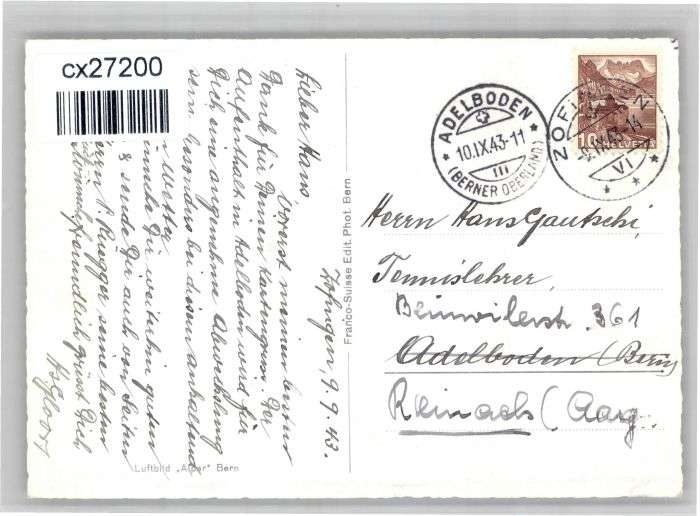 cx27200
Zofingen, 9. 9. 43.
Lieber Hans
Vorerst meinen besten
Dank für Deinen Kartengruss. Der
Aufenthalt in Adelboden wird für
Dich eine angenehme Abwechslung
sein, besonders bei diesem anhaltend
Wetter
wünsche Dir weiterhin guten
& sende Dir auch von Seiten
Rüegger seine besten
freundlich grüsst Dich
Luftbild „Alper" Bern
Franco-Suisse Edit. Phot. Bern
ADELBODEN
10.IX.43-11
III
(BERNER OBERLAND)
ZOFINGEN
IX.43-14
VI
10
HELVETIA
Herrn Hans Gautschi,
Tennislehrer,
Beinwilerstr. 361
Adelboden (Bern)
Reinach (Aarg.